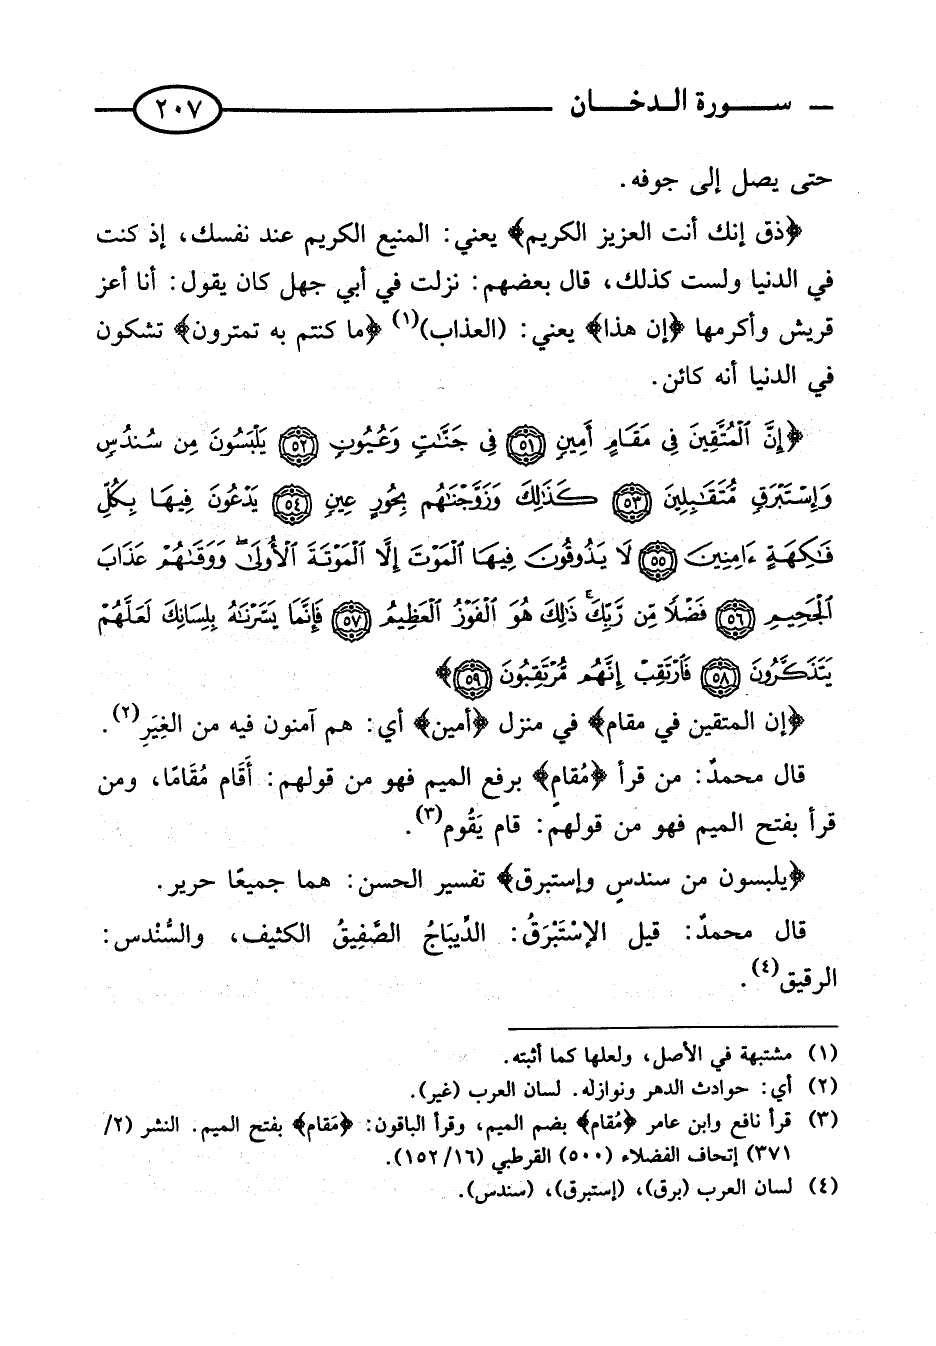 سورة الدخان ٢٠٧
حتى يصل إلى جوفه.
﴿ذق إنك أنت العزيز الكريم﴾ يعني: المنيع الكريم عند نفسك، إذ كنت
في الدنيا ولست كذلك، قال بعضهم: نزلت في أبي جهل كان يقول: أنا أعز
قريش وأكرمها ﴿إن هذا﴾ يعني: (العذاب)(١) ﴿ما كنتم به تمترون﴾ تشكون
في الدنيا أنه كائن.
﴿إِنَّ ٱلْمُتَّقِينَ فِى مَقَامٍ أَمِينٍ ٥١ فِى جَنَّٰتٍ وَعُيُونٍ ٥٢ يَلْبَسُونَ مِن سُندُسٍ
وَإِسْتَبْرَقٍ مُّتَقَٰبِلِينَ ٥٣ كَذَٰلِكَ وَزَوَّجْنَٰهُم بِحُورٍ عِينٍ ٥٤ يَدْعُونَ فِيهَا بِكُلِّ
فَٰكِهَةٍ ءَامِنِينَ ٥٥ لَا يَذُوقُونَ فِيهَا ٱلْمَوْتَ إِلَّا ٱلْمَوْتَةَ ٱلْأُولَىٰ ۖ وَوَقَىٰهُمْ عَذَابَ
ٱلْجَحِيمِ ٥٦ فَضْلًا مِّن رَّبِّكَ ۚ ذَٰلِكَ هُوَ ٱلْفَوْزُ ٱلْعَظِيمُ ٥٧ فَإِنَّمَا يَسَّرْنَٰهُ بِلِسَانِكَ لَعَلَّهُمْ
يَتَذَكَّرُونَ ٥٨ فَٱرْتَقِبْ إِنَّهُم مُّرْتَقِبُونَ ٥٩﴾
﴿إن المتقين في مقام﴾ في منزل ﴿أمين﴾ أي: هم آمنون فيه من الغِيَرِ(٢).
قال محمدٌ: من قرأ ﴿مُقامٍ﴾ برفع الميم فهو من قولهم: أَقَام مُقَامًا، ومن
قرأ بفتح الميم فهو من قولهم: قام يَقُوم(٣).
﴿يلبسون من سندسٍ وإستبرق﴾ تفسير الحسن: هما جميعًا حرير.
قال محمدٌ: قيل الإسْتَبْرَقُ: الدِّيباجُ الصَّفِيقُ الكثيف، والسُّنْدس:
الرقيق(٤).
(١) مشتبهة في الأصل، ولعلها كما أثبته.
(٢) أي: حوادث الدهر ونوازله. لسان العرب (غير).
(٣) قرأ نافع وابن عامر ﴿مُقام﴾ بضم الميم، وقرأ الباقون: ﴿مَقام﴾ بفتح الميم. النشر (٢/
٣٧١) إتحاف الفضلاء (٥٠٠) القرطبي (١٦/١٥٢).
(٤) لسان العرب (برق)، (إستبرق)، (سندس).